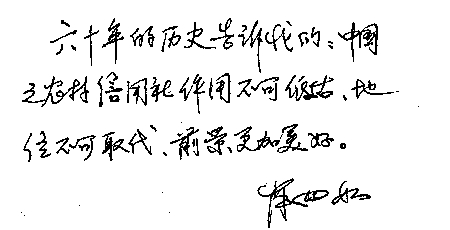 六十年的历史告诉我们：中國
之农村信用社作用不可低估、地
位不可取代、前景更加美好。